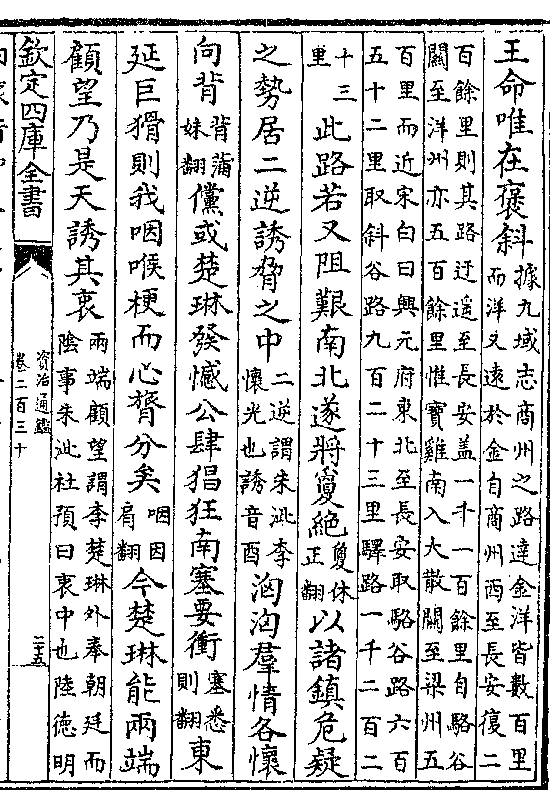 王命唯在褒斜據九域志商州之路達金洋皆數百里而洋又遠於金自商州西至長安復二
百餘里則其路迂遥至長安盖一千一百餘里自駱谷關至洋州亦五百餘里惟寶雞南入大散關至梁州五
百里而近宋白曰興元府東北至長安取駱谷路六百五十二里取斜谷路九百二十三里驛路一千二百二
十三里此路若又阻艱南北遂將敻絶敻休正翻以諸鎮危疑
之勢居二逆誘脅之中二逆謂朱泚李懷光也誘音酉洶洶羣情各懷
向背背蒲妹翻儻或楚琳發憾公肆猖狂南塞要衝塞悉則翻東
延巨猾則我咽喉梗而心膂分矣咽因肩翻今楚琳能兩端
顧望乃是天誘其衷兩端顧望謂李楚琳外奉朝廷而陰事朱泚杜預曰衷中也陸德明
欽定四庫全書
資治通鑑
卷二百三十
二十五